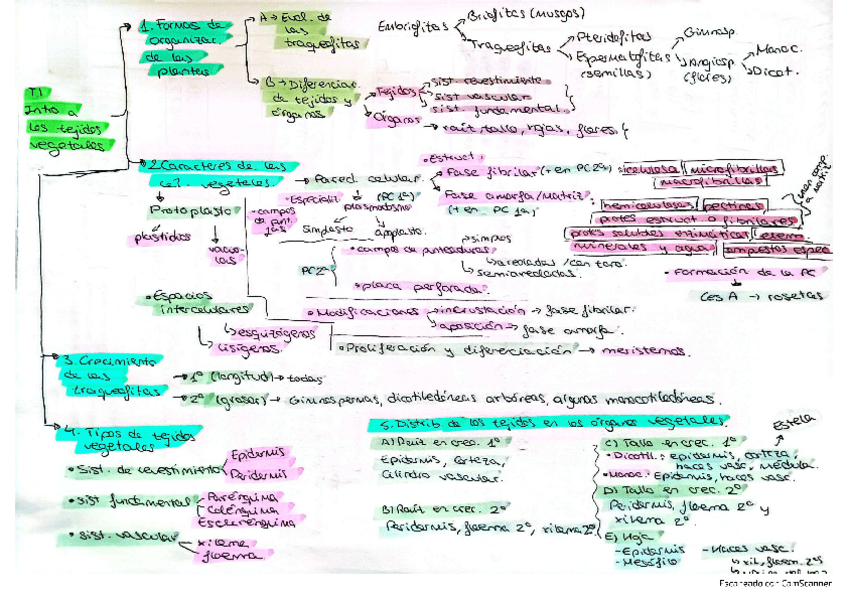 T1
Intro a
los tejidos
vegetales
1. Formas de
organizac.
de las
plantas
A → Evol. de
las
traqueofitas
Embriofitas
Briofitas (musgos)
Traqueofitas
Pteridofitas
Espermatofitas
(semillas)
Gimnosp.
Angiosp
(flores)
Monoc.
Dicot.
B → Diferenciac.
de tejidos y
órganos
Tejidos
sist. revestimiento
sist vascular
sist. fundamental
Órganos
→ raíz, tallo, hojas, flores,
2. Caracteres de las
cél. vegetales
Protoplasto
plastidios
vacuo-
las
→ Pared celular.
• Estruct.
Fase fibrilar (+ en PC 2ª)
celulosa
microfibrillas
macrofibrillas
Fase amorfa/Matriz:
(+ en PC 1ª)
hemicelulosas
pectinas
protes estruct o fibrilares
protes solubles enzimáticas
minerales y agua
• Especializ
(PC 1ª)
plasmodesmo
• campos
de punt.
Simplasto
apoplasto
PC2ª
• campos de punteaduras
simples
areoladas / con toro.
semiareoladas.
• placa perforada.
• Formación de la PC
Ces A → rosetas
• Espacios
intercelulares
esquizógenos
lisígenos.
• Modificaciones
→ incrustación → fase fibrilar.
aposición → fase amorfa.
• Proliferación y diferenciación → meristemos.
3. Crecimiento
de las
traqueofitas
→ 1º (longitud) → todas
→ 2º (grosor) → Gimnospermas, dicotiledóneas arbóreas, algunas monocotiledóneas.
4. Tipos de tejidos
vegetales
• Sist. de revestimiento
Epidermis
Peridermis
• sist fundamental
Parénquima
Colénquima
Esclerénquima
• sist. vascular
xilema
floema
5. Distrib de los tejidos en los órganos vegetales.
A) Raíz en crec. 1º
Epidermis, corteza,
cilindro vascular.
B) Raíz en crec. 2º
Peridermis, floema 2º, xilema 2º
C) Tallo en crec. 1º
Estela
• Dicotil.: epidermis, corteza,
haces vasc, médula.
• Monoc.: Epidermis, haces vasc.
D) Tallo en crec. 2º
Peridermis, floema 2º y
xilema 2º.
E) Hoja
- Epidermis
- Mesófilo
- Haces vasc.
Escaneado con CamScanner